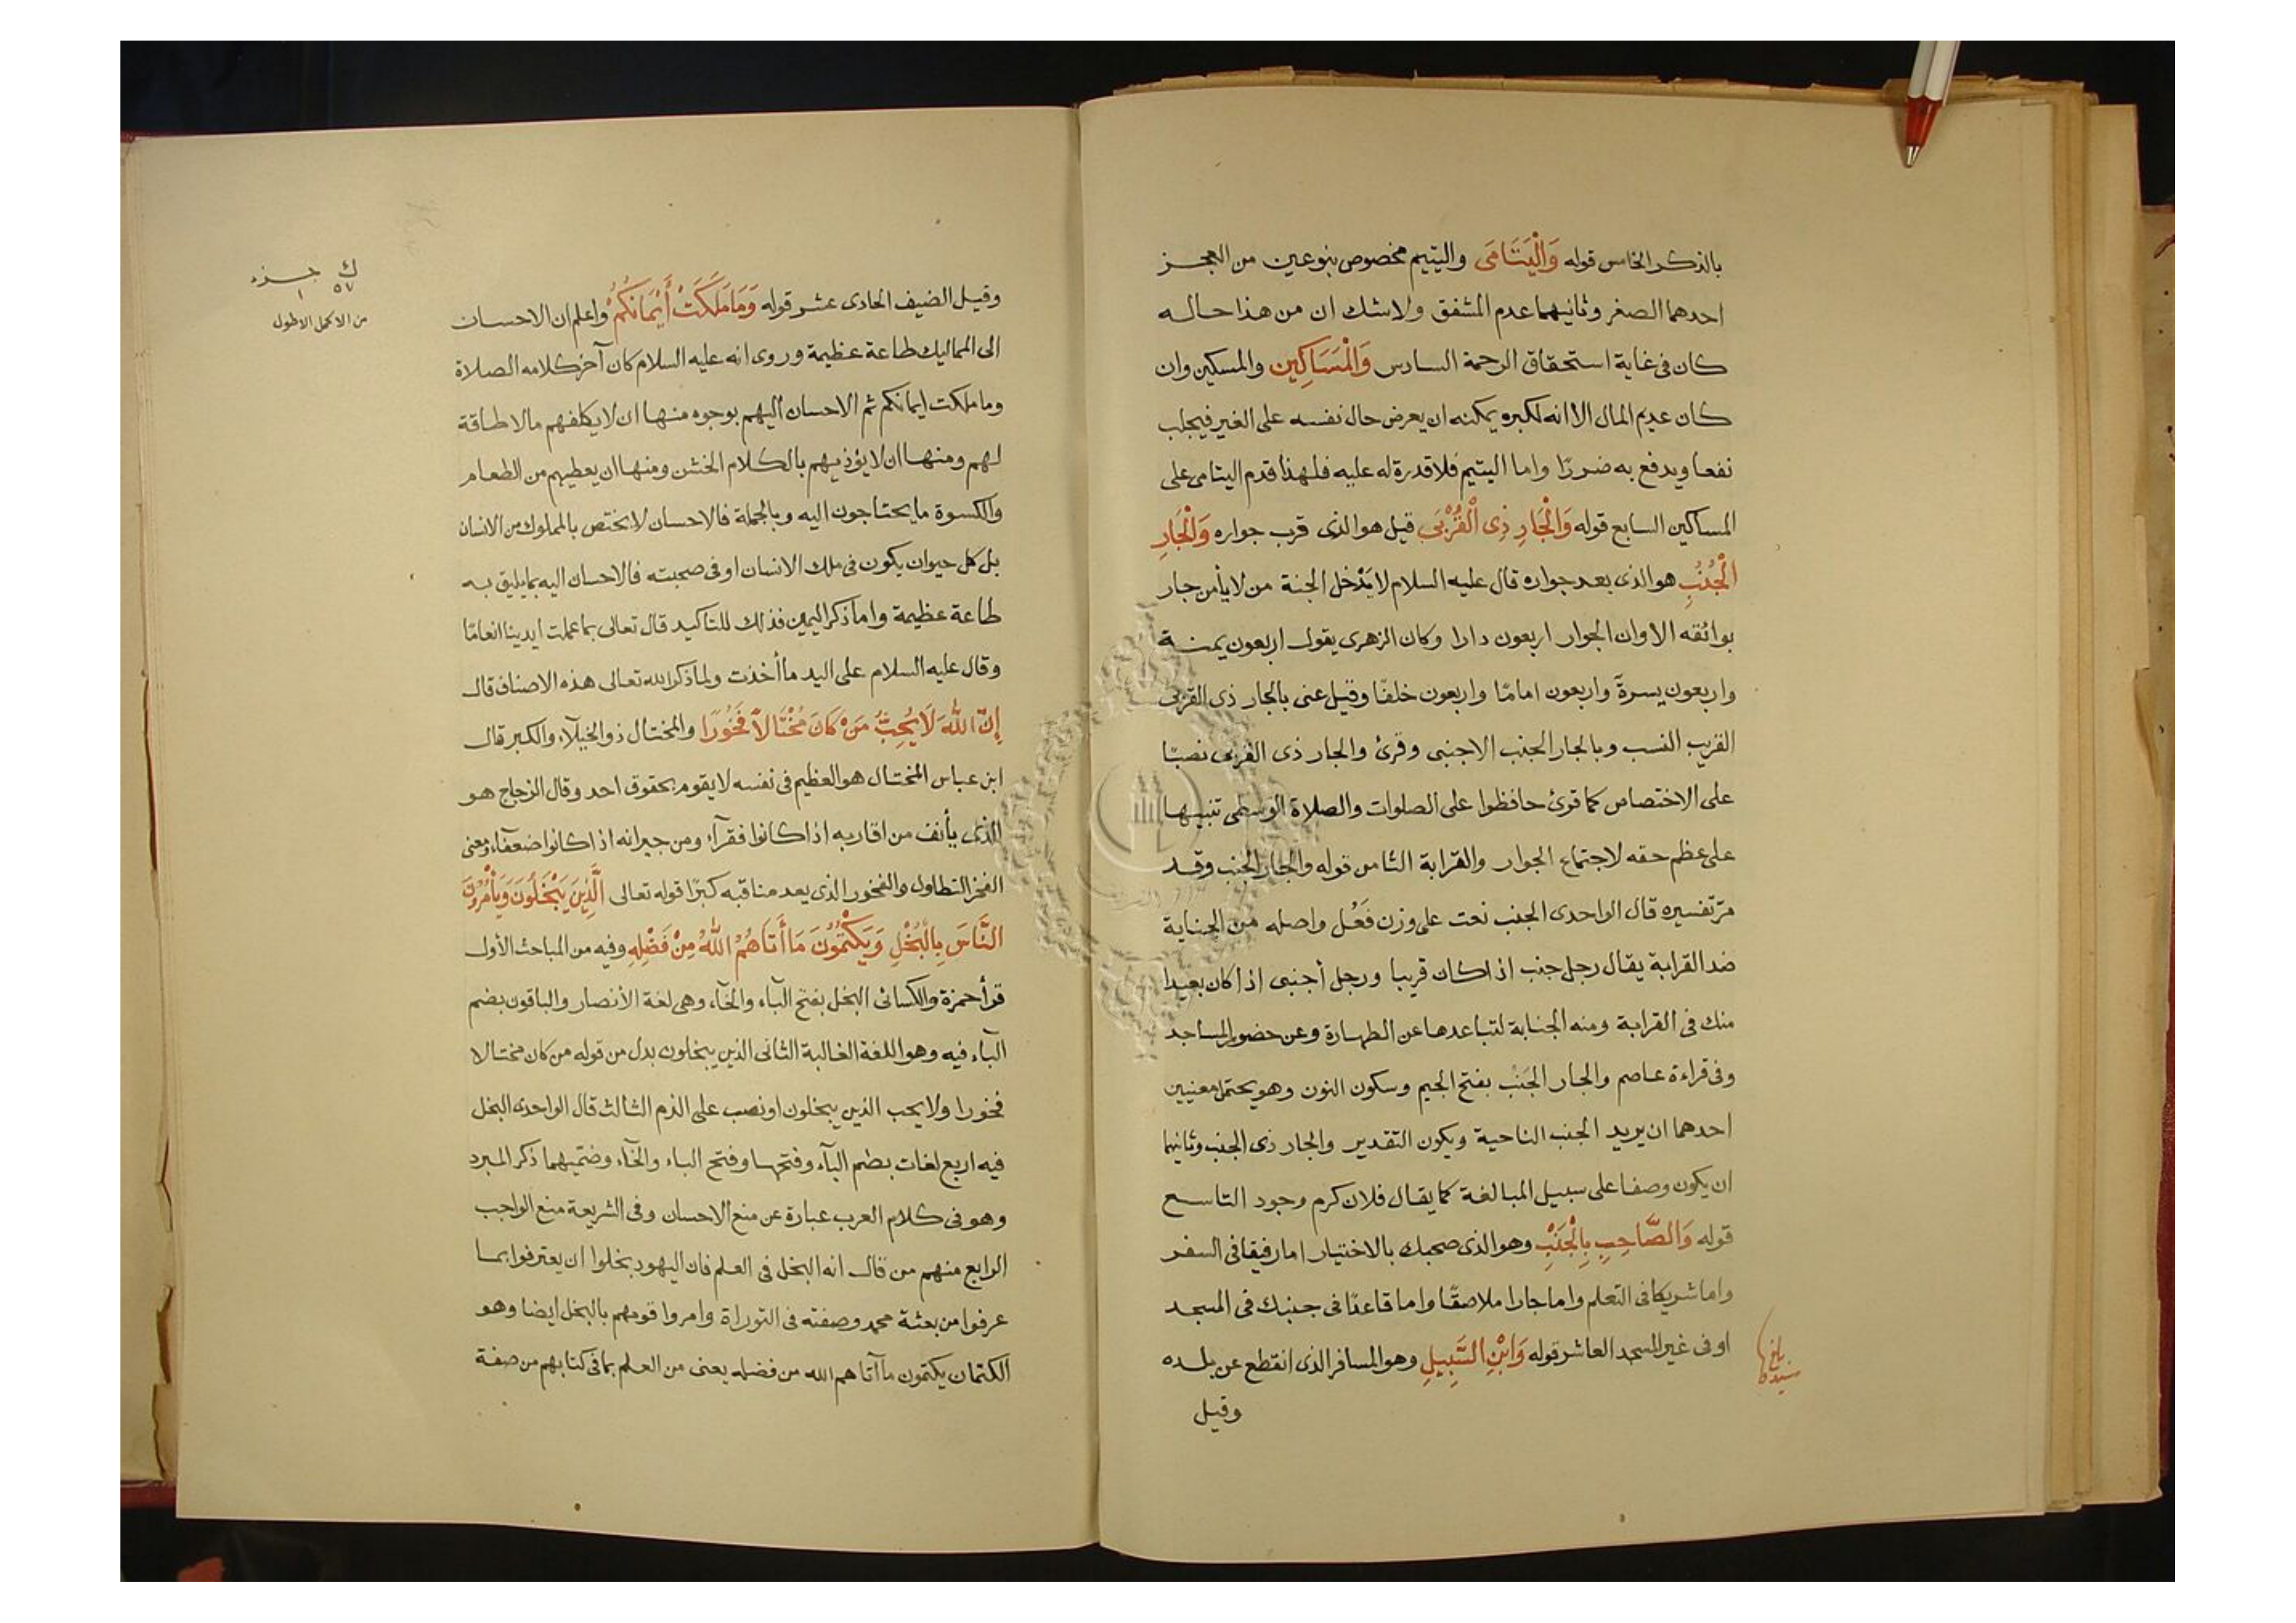 بالذكر الخامس قوله وَالْيَتَامَى واليتيم مخصوص بنوعين من العجز
احدهما الصغر وثانيهما عدم المشفق ولا شك ان من هذا حاله
كان فى غاية استحقاق الرحمة السادس وَالْمَسَاكِين والمسكين وان
كان عديم المال الا انه لكبره يمكنه ان يعرض حال نفسه على الغير فيجلب
نفعا ويدفع به ضررًا واما اليتيم فلا قدرة له عليه فلهذا قدم اليتامى على
المساكين السابع قوله وَالْجَارِ ذِى الْقُرْبَى قيل هو الذى قرب جواره وَالْجَارِ
الْجُنُبِ هو الذى بعد جواره قال عليه السلام لا يَدْخل الجنة من لا يأمن جار
بوائقه الا وان الجوار اربعون دارا وكان الزهرى يقول اربعون يمنة
واربعون يسرةً واربعون امامًا واربعون خلفًا وقيل عنى بالجار ذى القربى
القريب النسب وبالجار الجنب الاجنبى وقرئ والجار ذى القربى نصبًا
على الاختصاص كما قرئ حافظوا على الصلوات والصلاة الوسطى تنبيها
على عظم حقه لاجتماع الجوار والقرابة الثامن قوله والجار الجنب وقد
مرّ تفسيره قال الواحدى الجنب نعت على وزن فَعُل واصله من الجناية
ضد القرابة يقال رجل جنب اذا كان قريبا ورجل أجنبى اذا كان بعيدا
منك فى القرابة ومنه الجنابة لتباعدها عن الطهارة وعن حضور المساجد
وفى قراءة عاصم والجار الجَنْب بفتح الجيم وسكون النون وهو يحتمل معنيين
احدهما ان يريد الجنب الناحية ويكون التقدير والجار ذى الجنب وثانيهما
ان يكون وصفا على سبيل المبالغة كما يقال فلان كرم وجود التاسع
قوله وَالصَّاحِبِ بِالْجَنْبِ وهو الذى صحبك بالاختيار اما رفيقا فى السفر
واما شريكا فى التعلم واما جارا ملاصقًا واما قاعدًا فى جنبك فى المسجد
او فى غير المسجد العاشر قوله وَابْنِ السَّبِيلِ وهو المسافر الذى انقطع عن بلده
وقيل
وقيل الضيف الحادى عشر قوله وَمَا مَلَكَتْ أَيْمَانُكُمْ واعلم ان الاحسان
الى المماليك طاعة عظيمة وروى انه عليه السلام كان آخر كلامه الصلاة
وما ملكت ايمانكم ثم الاحسان اليهم بوجوه منها ان لا يكلفهم ما لا طاقة
لهم ومنها ان لا يؤذيهم بالكلام الخشن ومنها ان يعطيهم من الطعام
والكسوة ما يحتاجون اليه وبالجملة فالاحسان لا يختص بالمملوك من الانسان
بل كل حيوان يكون فى ملك الانسان او فى صحبته فالاحسان اليه بما يليق به
طاعة عظيمة واما ذكر اليمين فذلك للتاكيد قال تعالى بما عملت ايدينا انعامًا
وقال عليه السلام على اليد ما أخذت ولما ذكر الله تعالى هذه الاصناف قال
إِنَّ اللهَ لَا يُحِبُّ مَنْ كَانَ مُخْتَالاً فَخُورًا والمختال ذو الخيلآء والكبر قال
ابن عباس المختال هو العظيم فى نفسه لا يقوم بحقوق احد وقال الزجاج هو
الذى يأنف من اقاربه اذا كانوا فقرآء ومن جيرانه اذا كانوا ضعفآء ومعنى
الفخر التطاول والفخور الذى يعد مناقبه كبرًا قوله تعالى الَّذِينَ يَبْخَلُونَ وَيَأْمُرُونَ
النَّاسَ بِالْبُخْلِ وَيَكْتُمُونَ مَا أَتَاهُمُ اللهُ مِنْ فَضْلِهِ وفيه من المباحث الأول
قرأ حمزة والكسائى البخل بفتح البآء والخآء وهى لغة الأنصار والباقون بضم
البآء فيه وهو اللغة الغالبة الثانى الذين يبخلون بدل من قوله من كان مختالا
فخورا ولا يحب الذين يبخلون او نصب على الذم الثالث قال الواحدى البخل
فيه اربع لغات بضم البآء وفتحها وفتح الباء والخآء وضمّيهما ذكر المبرد
وهو فى كلام العرب عبارة عن منع الاحسان وفى الشريعة منع الواجب
الرابع منهم من قال انه البخل فى العلم فان اليهود بخلوا ان يعترفوا بما
عرفوا من بعثة محمد وصفته فى التوراة وامروا قومهم بالبخل ايضا وهو
الكتمان يكتمون ما آتاهم الله من فضله يعنى من العلم بما فى كتابهم من صفة
ك جزء
٥٧ ١
من الاكمل الاطول